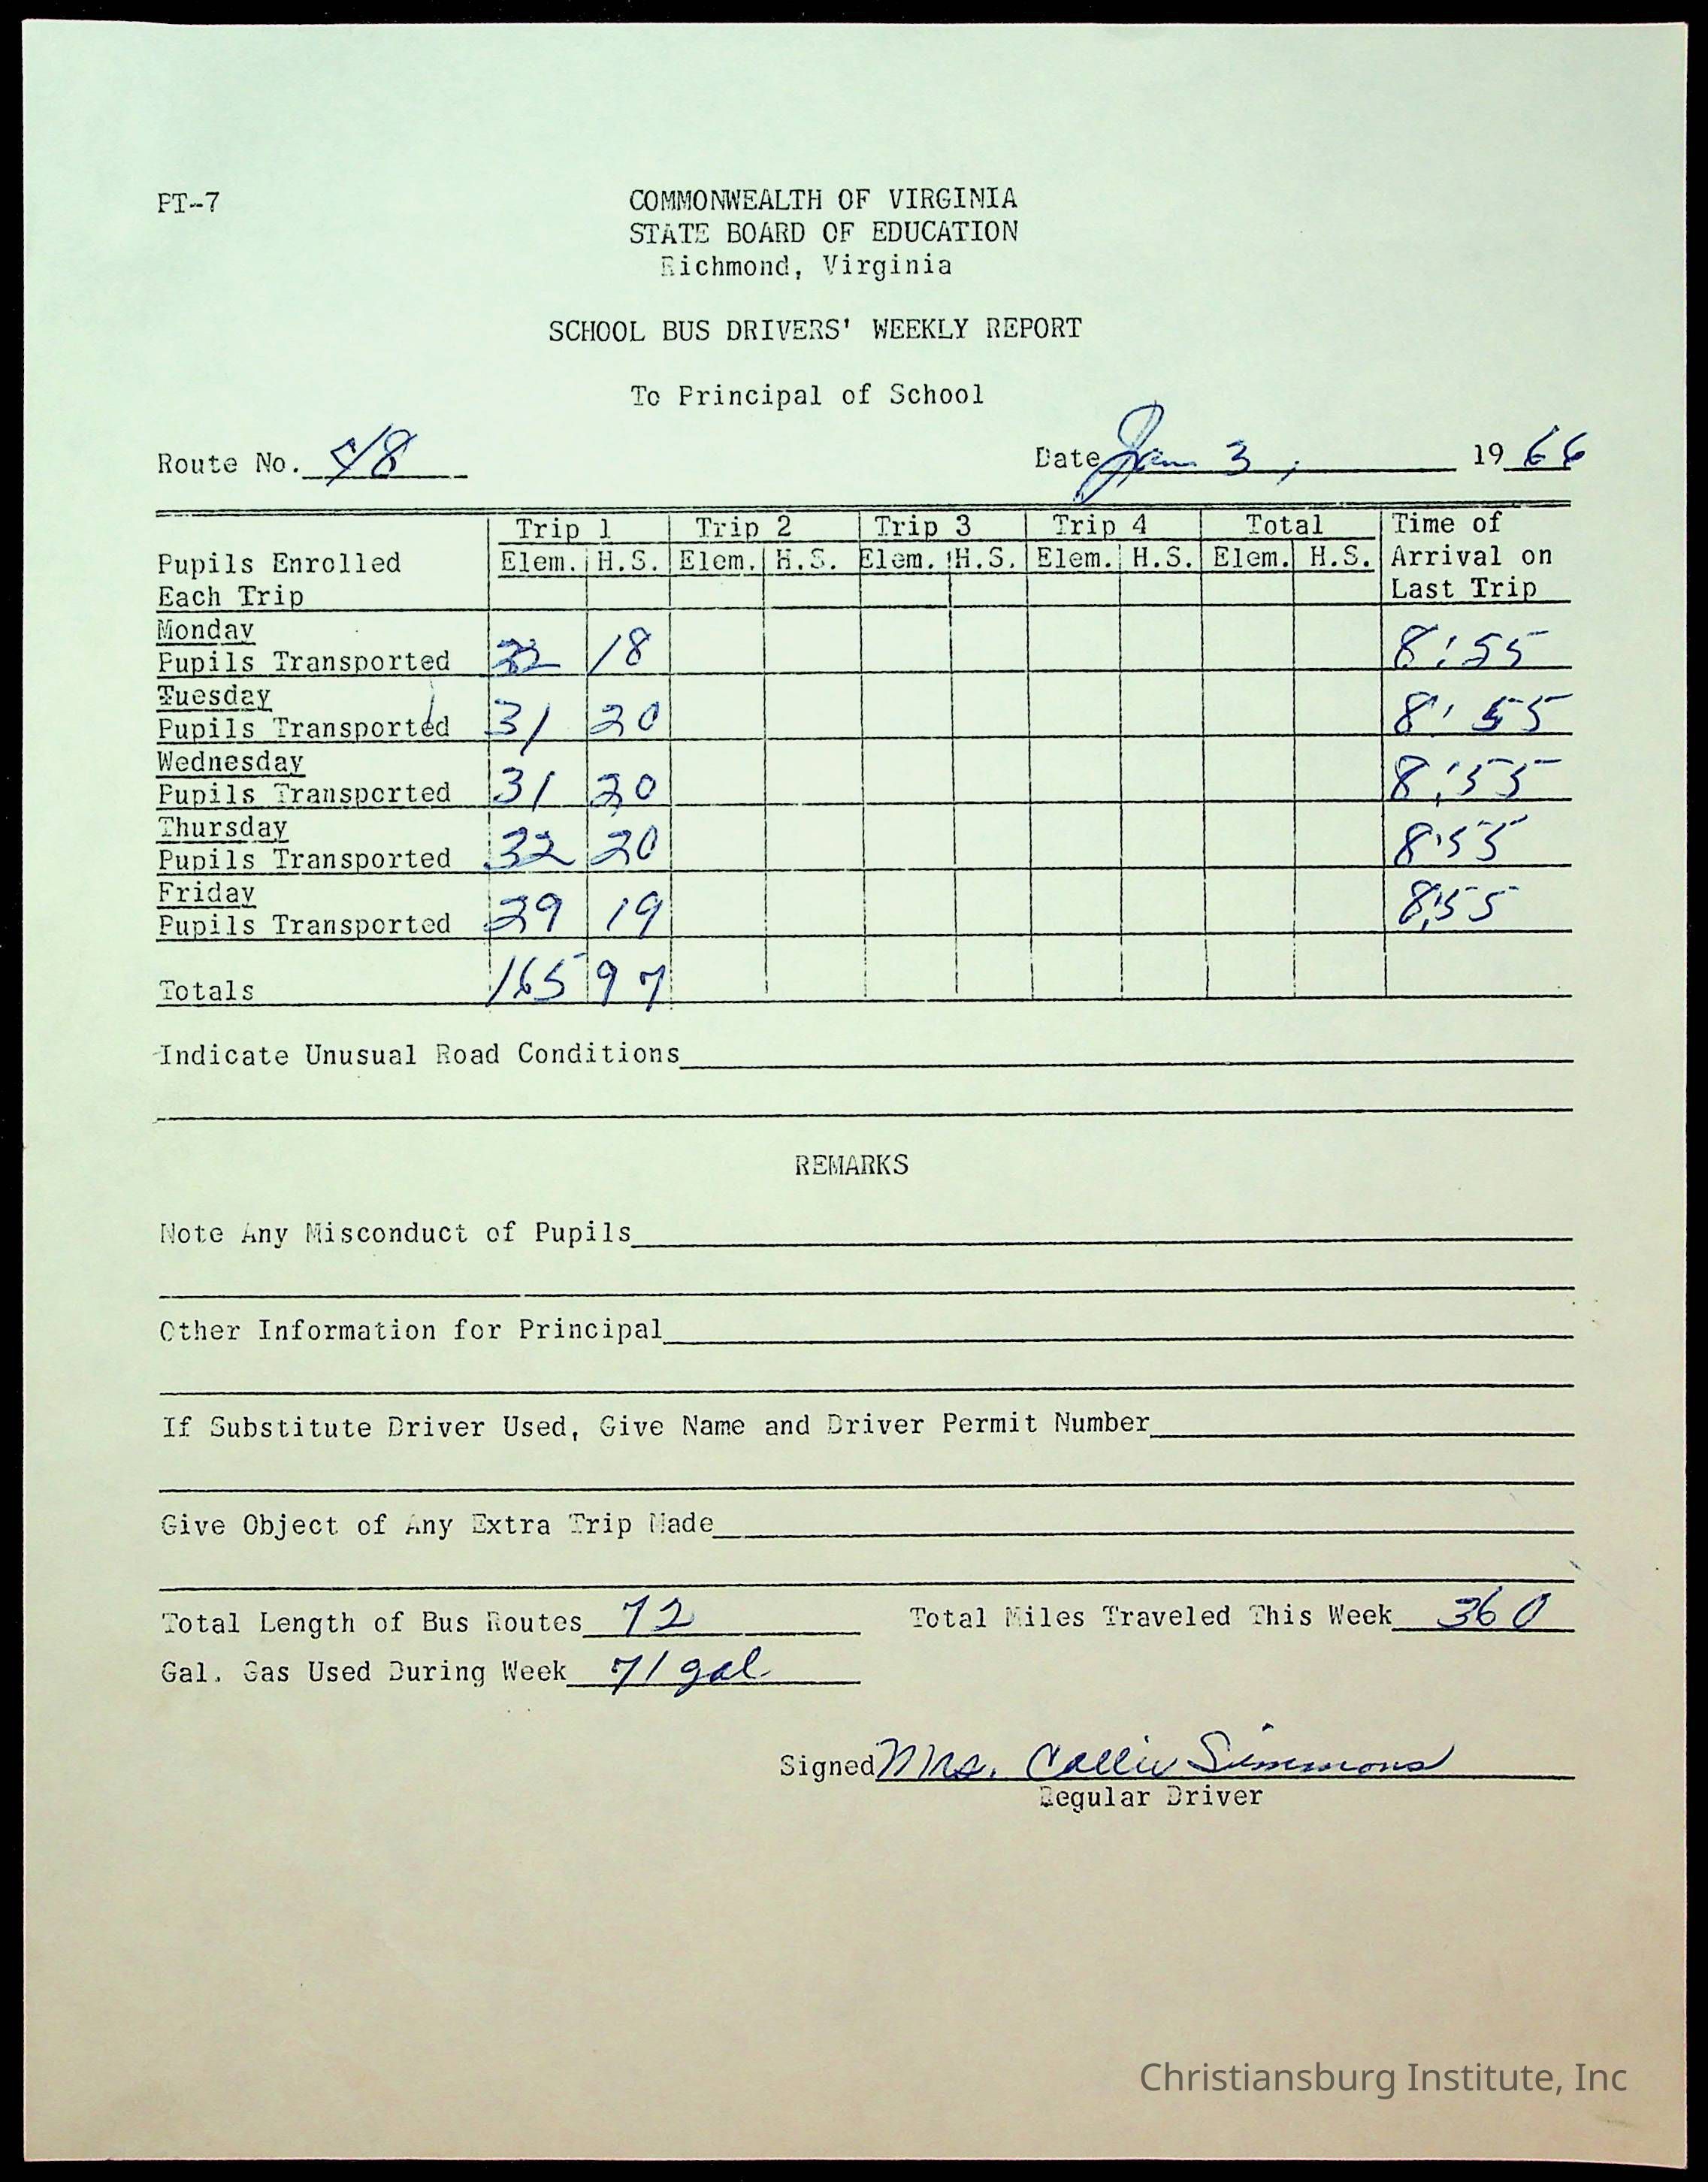 PT-7
COMMONWEALTH OF VIRGINIA
STATE BOARD OF EDUCATION
Richmond, Virginia
SCHOOL BUS DRIVERS' WEEKLY REPORT
To Principal of School
Route No. 48 Date Jan 3, 19 66
Trip 1 Trip 2 Trip 3 Trip 4 Total Time of
Pupils Enrolled Elem. H.S. Elem. H.S. Elem. H.S. Elem. H.S. Elem. H.S. Arrival on
Each Trip Last Trip
Monday
Pupils Transported 18 8:55
Tuesday
Pupils Transported 31 20 8:55
Wednesday
Pupils Transported 31 20 8:55
Thursday
Pupils Transported 32 20 8:55
Friday
Pupils Transported 29 19 8:55
Totals 165 97
Indicate Unusual Road Conditions
REMARKS
Note Any Misconduct of Pupils
Other Information for Principal
If Substitute Driver Used, Give Name and Driver Permit Number
Give Object of Any Extra Trip Made
Total Length of Bus Routes 72 Total Miles Traveled This Week 360
Gal. Gas Used During Week 71 gal.
Signed Mrs. Callie Simmons
Regular Driver
Christiansburg Institute, Inc